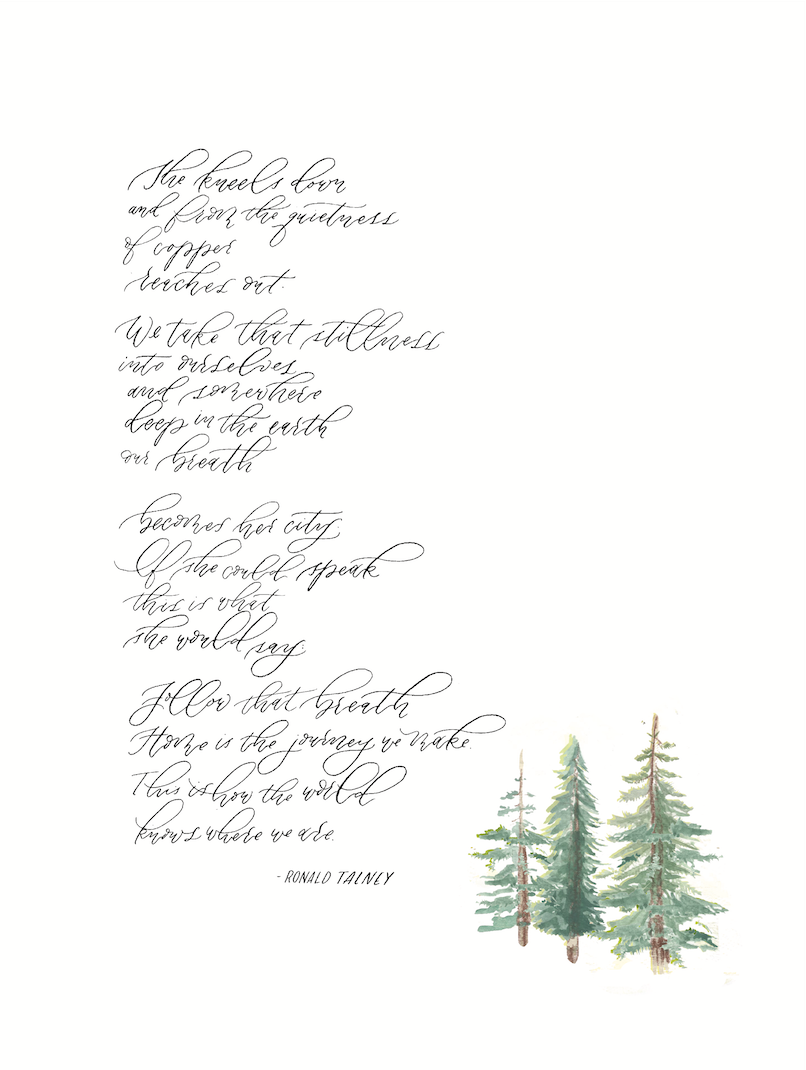 She kneels down
and from the quietness
of copper
reaches out.
We take that stillness
into ourselves
and somewhere
deep in the earth
our breath
becomes her city.
If she could speak
this is what
she would say:
Follow that breath
Home is the journey we make.
This is how the world
knows where we are.
- RONALD TALNEY